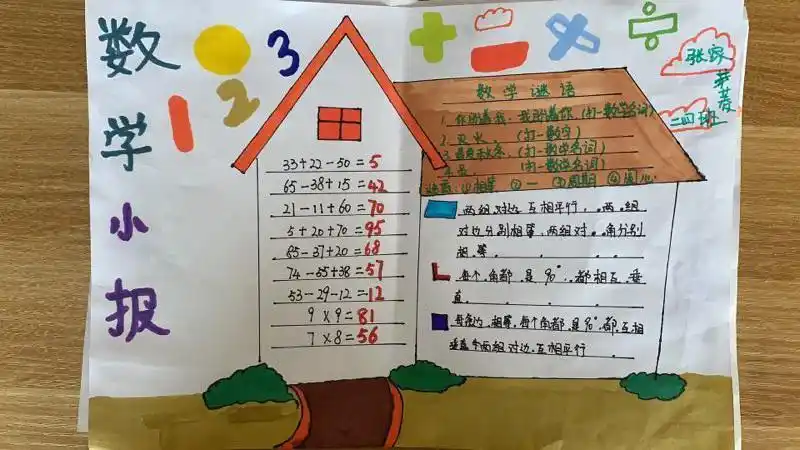 数学小报
1 2 3
张家
二四班
33+22-50=5
65-38+15=42
21-11+60=70
5+20+70=95
85-37+20=68
74-55+38=57
53-29-12=12
9×9=81
7×8=56
数学谜语
1. 你盼着我,我盼着你(打一数学名词)
2. 灭火。(打一数字)
(打一数学名词)
(打一数学名词)
①相等 ②一 ③周期 ④圆心
两组对边互相平行,两组
对边分别相等,两组对角分别
相等
每个角都是90°,都相互垂
直
相等,每个角都是90°都互相
垂直 两组对边互相平行